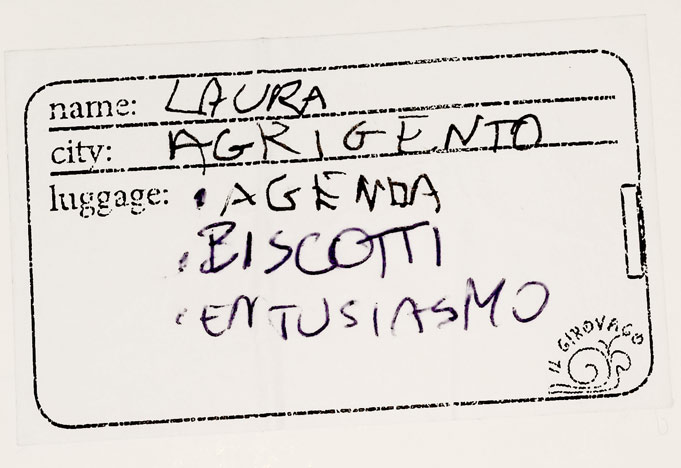 name: LAURA
city: AGRIGENTO
luggage: • AGENDA
• BISCOTTI
• ENTUSIASMO
IL GIROVAGO